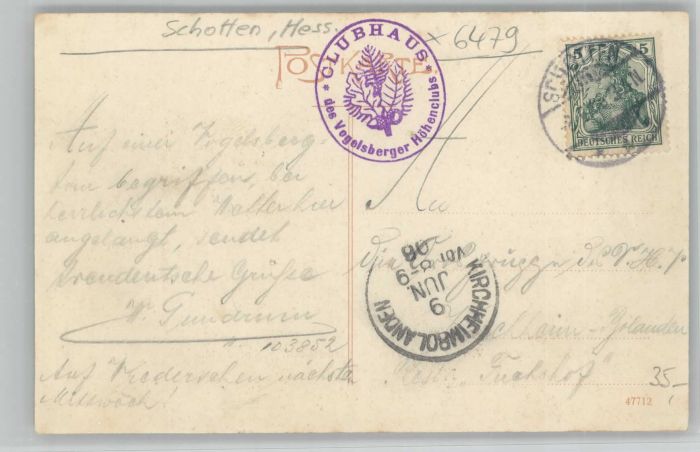 Schotten, Hess.
x 6479
POSTKARTE
* CLUBHAUS *
des Vogelsberger Höhenclubs
5 5
DEUTSCHES REICH
SCHOTTEN
Auf einer Vogelsberg-
tour begriffen, bei
herrlichstem Wetter hier
angelangt, sendet
freundeutsche Grüße
K. Gundrum
103852
Auf Wiedersehen nächsten
Mittwoch!
An
die
d. V. H. C.
Kirchheim-Bolanden
Rest. "Fuchshof"
KIRCHHEIMBOLANDEN
9
JUN.
8-9
Vor
06
35.-
47712